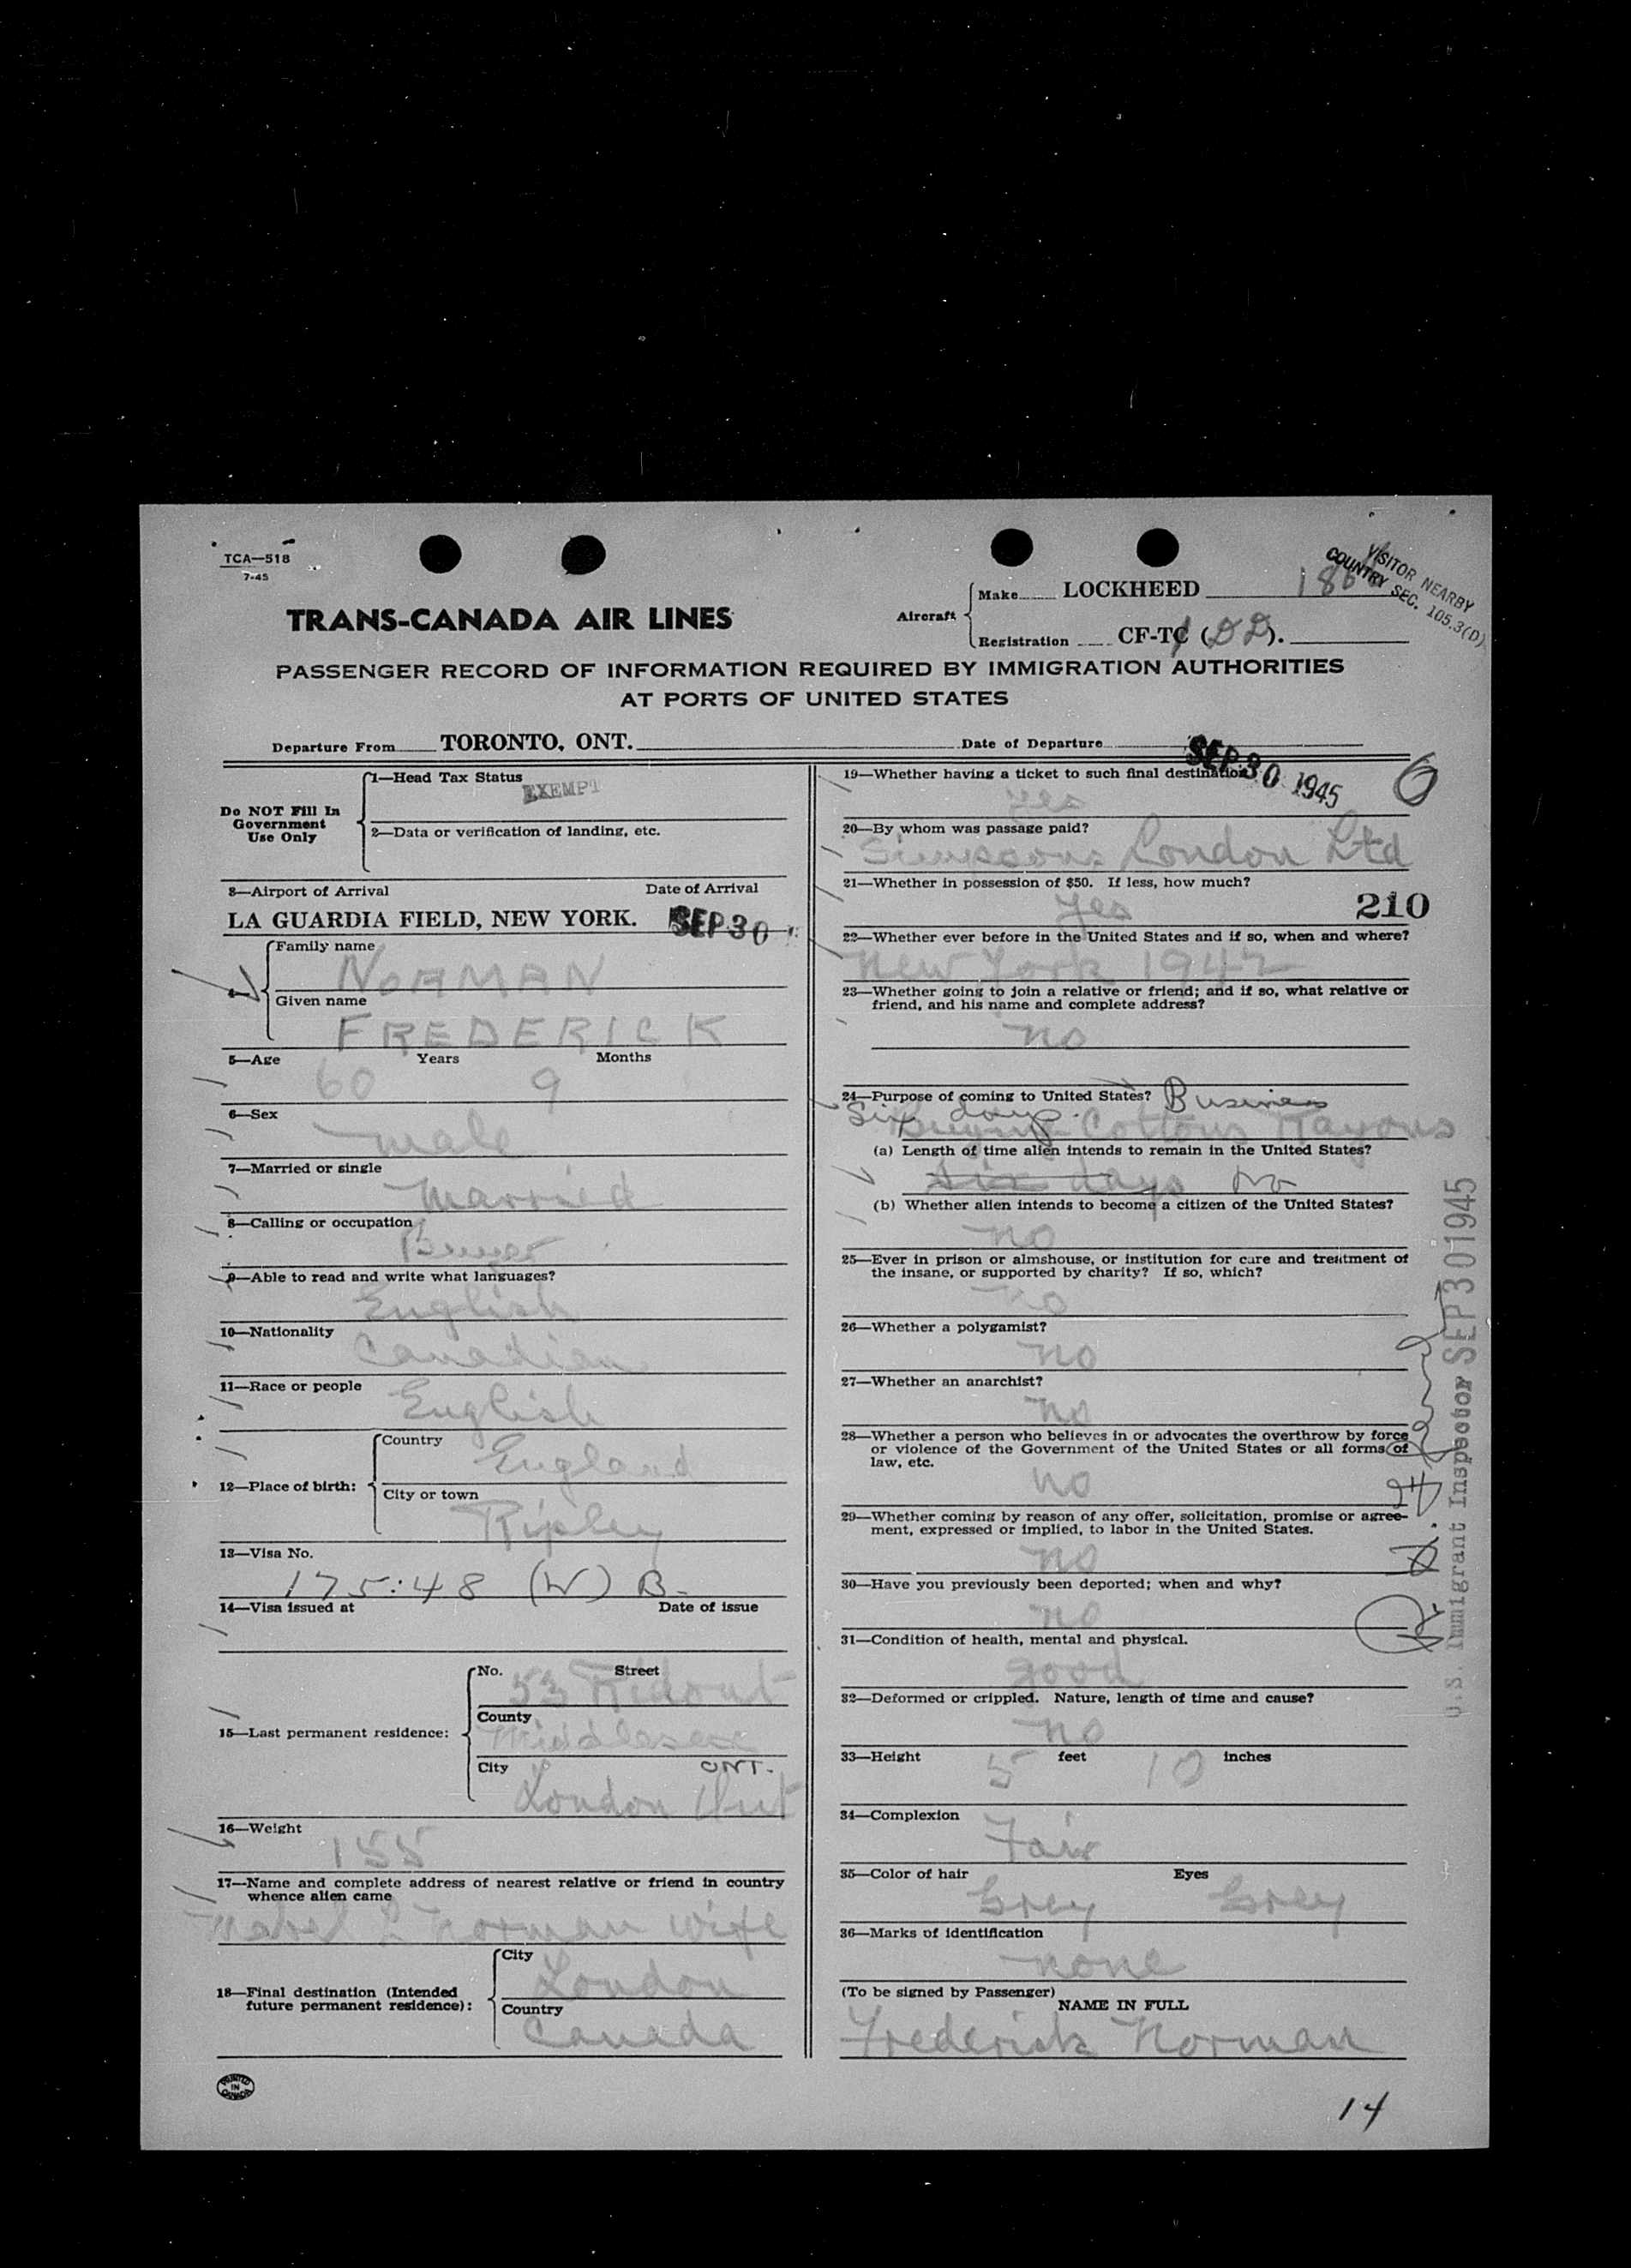 TCA—518
7-45
VISITOR NEARBY
COUNTRY SEC. 105.3(D)
TRANS-CANADA AIR LINES
Aircraft
Make LOCKHEED
Registration CF-TC (DD).
PASSENGER RECORD OF INFORMATION REQUIRED BY IMMIGRATION AUTHORITIES
AT PORTS OF UNITED STATES
Departure From TORONTO, ONT. Date of Departure SEP 30 1945
Do NOT Fill In
Government
Use Only
1—Head Tax Status
EXEMPT
2—Data or verification of landing, etc.
3—Airport of Arrival Date of Arrival
LA GUARDIA FIELD, NEW YORK. SEP 30
4—
Family name
NORMAN
Given name
FREDERICK
5—Age Years Months
60 9
6—Sex
male
7—Married or single
Married
8—Calling or occupation
Buyer
9—Able to read and write what languages?
English
10—Nationality
Canadian
11—Race or people
English
12—Place of birth:
Country
England
City or town
Ripley
13—Visa No.
175:48 (W) B-
14—Visa issued at Date of issue
15—Last permanent residence:
No. Street
53 Ridout
County
Middlesex
City ONT.
London Ont
16—Weight
155
17—Name and complete address of nearest relative or friend in country
whence alien came
Mabel L Norman wife
18—Final destination (Intended
future permanent residence):
City
London
Country
Canada
PRINTED
IN
CANADA
19—Whether having a ticket to such final destination
yes
6
20—By whom was passage paid?
Simpsons London Ltd
21—Whether in possession of $50. If less, how much?
yes
210
22—Whether ever before in the United States and if so, when and where?
New York 1942
23—Whether going to join a relative or friend; and if so, what relative or
friend, and his name and complete address?
no
24—Purpose of coming to United States? Business
Six days.
Buying Cottons Rayons
(a) Length of time alien intends to remain in the United States?
Six days No
(b) Whether alien intends to become a citizen of the United States?
no
25—Ever in prison or almshouse, or institution for care and treatment of
the insane, or supported by charity? If so, which?
no
26—Whether a polygamist?
no
27—Whether an anarchist?
no
28—Whether a person who believes in or advocates the overthrow by force
or violence of the Government of the United States or all forms of
law, etc.
no
29—Whether coming by reason of any offer, solicitation, promise or agree-
ment, expressed or implied, to labor in the United States.
no
30—Have you previously been deported; when and why?
no
31—Condition of health, mental and physical.
good
32—Deformed or crippled. Nature, length of time and cause?
no
33—Height 5 feet 10 inches
34—Complexion
Fair
35—Color of hair Eyes
Grey Grey
36—Marks of identification
none
(To be signed by Passenger)
NAME IN FULL
Frederick Norman
U.S. Immigrant Inspector SEP 30 1945
14